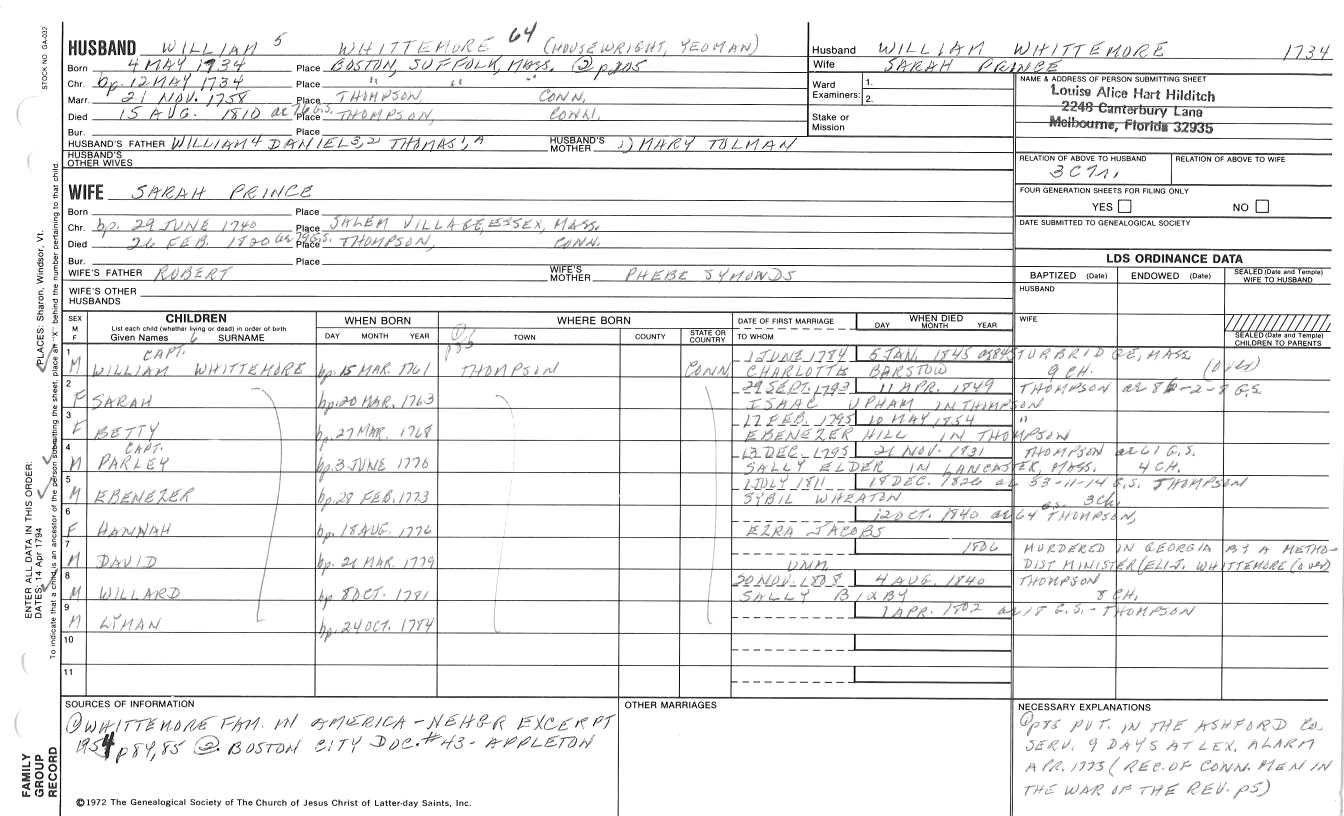 STOCK NO. GA-032
HUSBAND WILLIAM 5 WHITTEMORE 64 (HOUSEWRIGHT, YEOMAN)
Born 4 MAY 1734 Place BOSTON, SUFFOLK, MASS. ② p205
Chr. bp. 12 MAY 1734 Place " " "
Marr. 21 NOV. 1758 Place THOMPSON, CONN.
Died 15 AUG. 1810 ae 76 G.S. Place THOMPSON, CONN.
Bur. Place
HUSBAND'S FATHER WILLIAM 4 DANIEL 3,2 THOMAS 1, A HUSBAND'S MOTHER 1) MARY TOLMAN
HUSBAND'S OTHER WIVES
WIFE SARAH PRINCE
Born Place
Chr. bp. 29 JUNE 1740 Place SALEM VILLAGE, ESSEX, MASS.
Died 26 FEB. 1820 ae 79 G.S. Place THOMPSON, CONN.
Bur. Place
WIFE'S FATHER ROBERT WIFE'S MOTHER PHEBE SYMONDS
WIFE'S OTHER HUSBANDS
Husband WILLIAM WHITTEMORE 1734
Wife SARAH PRINCE
Ward Examiners: 1.
2.
Stake or Mission
NAME & ADDRESS OF PERSON SUBMITTING SHEET
Louise Alice Hart Hilditch
2248 Canterbury Lane
Melbourne, Florida 32935
RELATION OF ABOVE TO HUSBAND RELATION OF ABOVE TO WIFE
3C7r.
FOUR GENERATION SHEETS FOR FILING ONLY
YES NO
DATE SUBMITTED TO GENEALOGICAL SOCIETY
LDS ORDINANCE DATA
BAPTIZED (Date) ENDOWED (Date) SEALED (Date and Temple) WIFE TO HUSBAND
HUSBAND
WIFE
SEALED (Date and Temple) CHILDREN TO PARENTS
SEX M F CHILDREN WHEN BORN WHERE BORN DATE OF FIRST MARRIAGE WHEN DIED
List each child (whether living or dead) in order of birth
Given Names 6 SURNAME DAY MONTH YEAR ① p85 TOWN COUNTY STATE OR COUNTRY TO WHOM DAY MONTH YEAR
1 CAPT. 1 JUNE 1784 5 JAN. 1845 ae 84 STURBRIDGE, MASS
M WILLIAM WHITTEMORE bp. 15 MAR. 1761 THOMPSON CONN CHARLOTTE BARSTOW 9 CH. (over)
2 29 SEPT. 1793 11 APR. 1849 THOMPSON ae 86-2-8 G.S
F SARAH bp. 20 MAR. 1763 ISAAC UPHAM IN THOMPSON
3 17 FEB. 1795 10 MAY 1854 "
F BETTY bp. 27 MAR. 1768 EBENEZER HILL IN THOMPSON
4 CAPT. 13 DEC. 1795 21 NOV. 1831 THOMPSON ae 61 G.S.
M PARLEY bp. 3 JUNE 1770 SALLY ELDER IN LANCASTER, MASS. 4 CH.
5 1 JULY 1811 18 DEC. 1826 ae 53-11-14 G.S. THOMPSON
M EBENEZER bp. 28 FEB. 1773 SYBIL WHEATON 3 Ch.
6 12 OCT. 1840 ae 64 G.S. THOMPSON,
F HANNAH bp. 18 AUG. 1776 EZRA JACOBS
7 1806 MURDERED IN GEORGIA BY A METHO-
M DAVID bp. 21 MAR. 1779 UNM DIST MINISTER (ELIJ. WHITTEMORE (over)
8 20 NOV. 1805 4 AUG. 1840 THOMPSON
M WILLARD bp 8 OCT. 1781 SALLY BIXBY 8 CH.
9 1 APR. 1802 ae 18 G.S. - THOMPSON
M LYMAN bp. 24 OCT. 1784
10
11
SOURCES OF INFORMATION
① WHITTEMORE FAM. IN AMERICA - NEH&R EXCERPT
1954 p84,85 ② BOSTON CITY DOC. #43 - APPLETON
OTHER MARRIAGES
NECESSARY EXPLANATIONS
① p85 PVT. IN THE ASHFORD CO.
SERV. 9 DAYS AT LEX. ALARM
APR. 1775 (REC. OF CONN. MEN IN
THE WAR OF THE REV. p5)
©1972 The Genealogical Society of The Church of Jesus Christ of Latter-day Saints, Inc.
FAMILY GROUP RECORD
ENTER ALL DATA IN THIS ORDER:
DATES: 14 Apr 1794
PLACES: Sharon, Windsor, Vt.
To indicate that a child is an ancestor of the person submitting the sheet, place an "X" behind the number pertaining to that child.